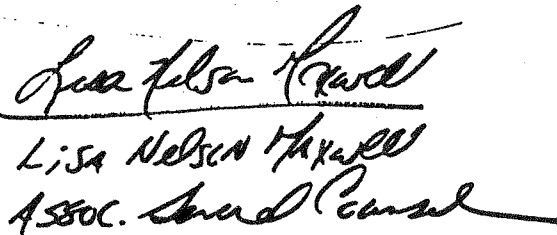 Lisa Nelson Maxwell
LiSA NelSoN MAxwell
ASSOC. General Counsel